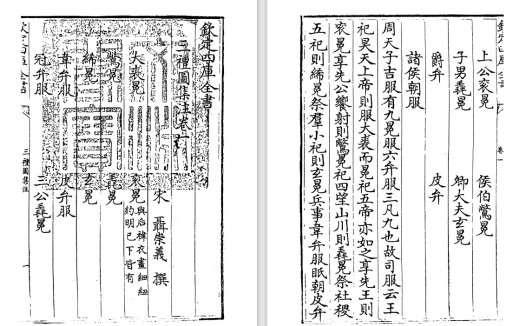 欽定四庫全書
三禮圖集注卷一
宋 聶崇義 撰
大裘冕 袞冕 與后褘衣畫細紐
約明已下皆有
鷩冕 毳冕
絺冕 玄冕
韋弁服 皮弁服
冠弁服 三公毳冕
欽定四庫全書 三禮圖集注
欽定四庫全書 卷一
上公袞冕 侯伯鷩冕
子男毳冕 卿大夫玄冕
爵弁 皮弁
諸侯朝服
周天子吉服有九冕服六弁服三凡九也故司服云王
祀昊天上帝則服大裘而冕祀五帝亦如之享先王則
袞冕享先公饗射則鷩冕祀四望山川則毳冕祭社稷
五祀則絺冕祭羣小祀則玄冕兵事韋弁服眂朝皮弁